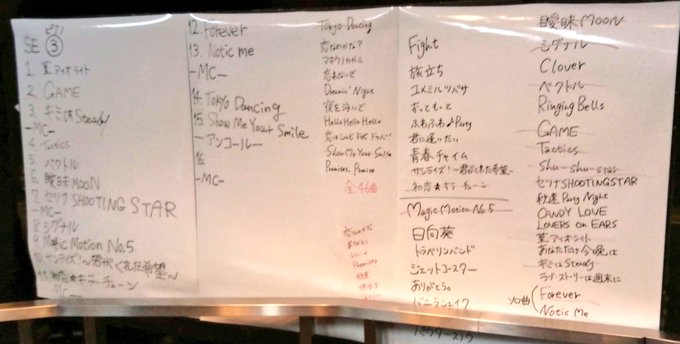 ピアノ
SE ③
1. 菫アイオライト
2. GAME
3. キミはSteady
-MC-
4. Tactics
5. ベクトル
6. 曖昧MOON
7. セツナSHOOTING STAR
-MC-
8. シグナル
9. Magic Motion No.5
10. サンライズ!〜君がくれた希望〜
11. 初恋★キラーチューン
-MC-
12. Forever
13. Notic me
-MC-
14. Tokyo Dancing
15. Show Me Your Smile
-アンコール-
16.
-MC-
Tokyo Dancing
恋なのかな?
マホウノカガミ
忘れないで
Dreamin' Night
夜を泳いで
Hello Hello Hello
Show Me Your Smile
Promises, Promise
全46曲
Fight
旅立ち
ユメミルツバサ
ずっともっと
ふわふわ♪Party
君に逢いたい
青春チャイム
サンライズ!〜君がくれた希望〜
初恋★キラーチューン
Magic Motion No.5
日向葵
トラベリンバンド
ジェットコースター
ありがとう。
バニラシェイク
曖昧MOON
シグナル
Clover
ベクトル
Ringing Bells
GAME
Tactics
Shu-Shu-Star
セツナSHOOTING STAR
秒速Party Night
CANDY LOVE
LOVERS ON EARS
菫アイオライト
あなただけ今晩は
キミはSteady
ラブ・ストーリーは週末に
ソロ曲
Forever
Notic Me